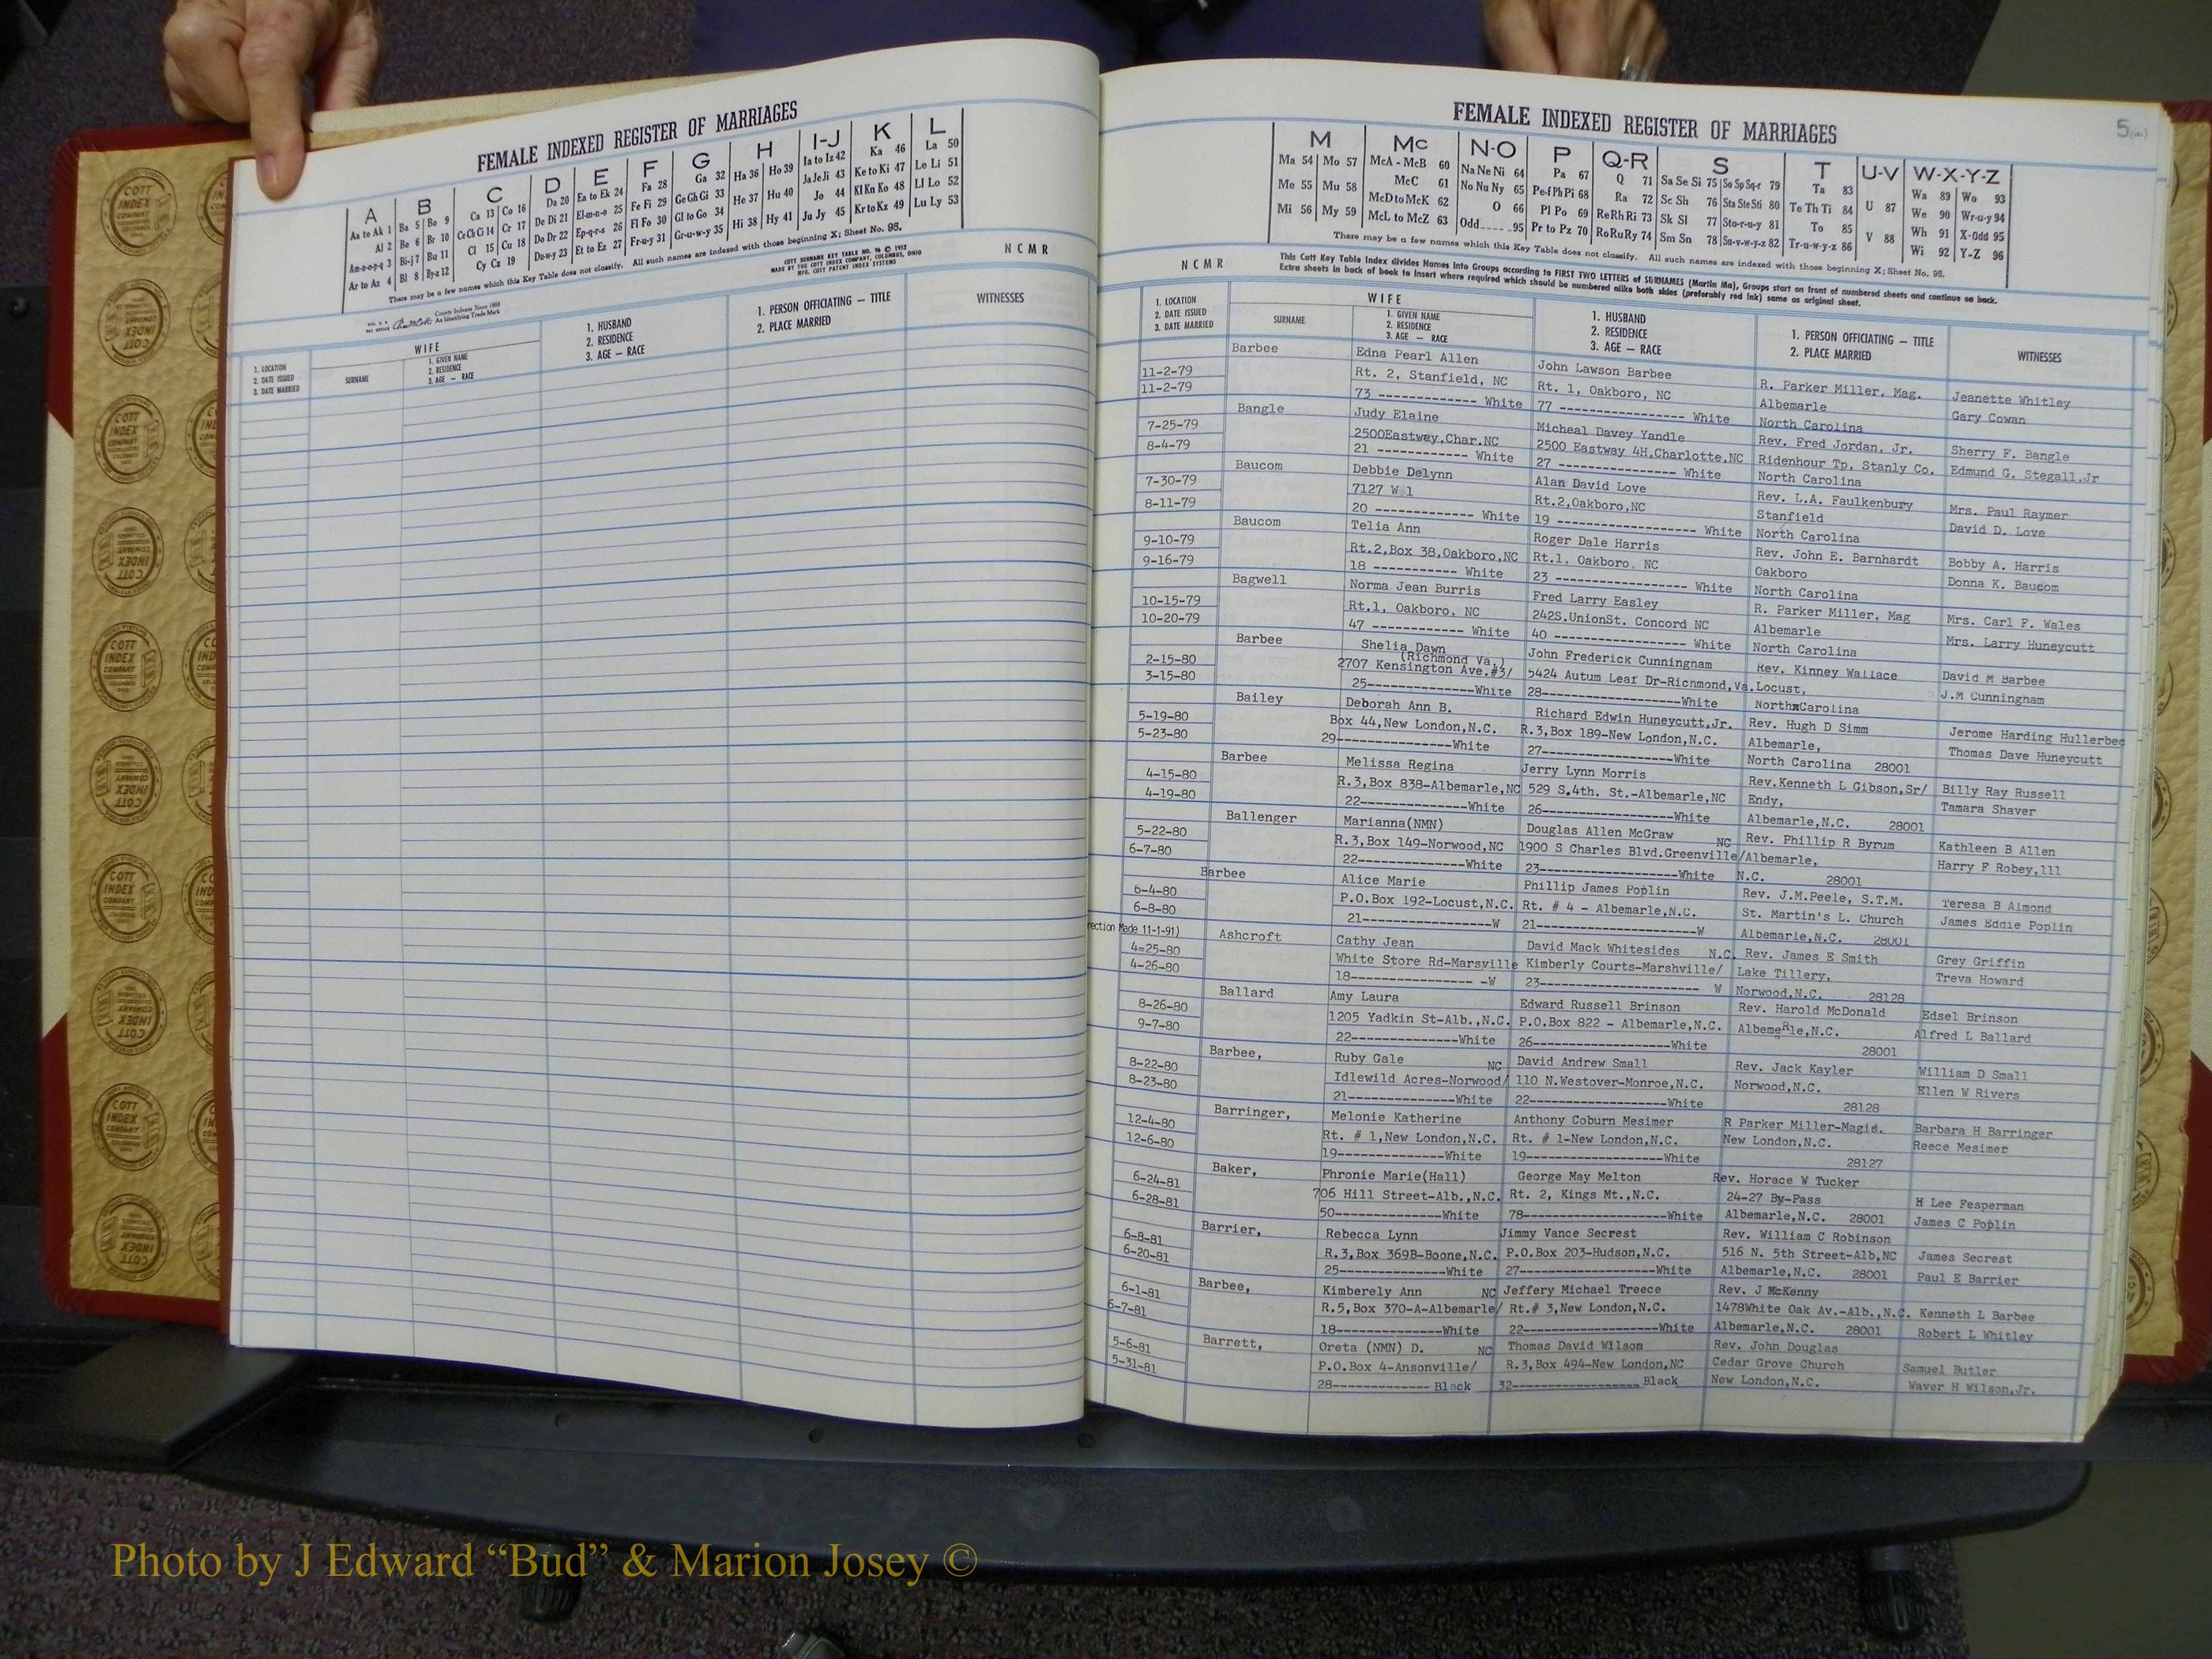 FEMALE INDEXED REGISTER OF MARRIAGES
A B C D E F G H I-J K L
Aa to Ak 1 Ba 5 Bo 9 Ca 13 Co 16 Da 20 Ea to Ek 24 Fa 28 Ga 32 Ha 36 Ho 39 Ia to Iz 42 Ka 46 La 50
Al 2 Be 6 Br 10 Ce Ch Ci 14 Cr 17 De Di 21 El-m-n-o 25 Fe Fi 29 Ge Gh Gi 33 He 37 Hu 40 Ja Je Ji 43 Ke to Ki 47 Le Li 51
Am-n-o-p-q 3 Bi-j 7 Bu 11 Cl 15 Cu 18 Do Dr 22 Ep-q-r-s 26 Fl Fo 30 Gl to Go 34 Hi 38 Hy 41 Jo 44 Kl Kn Ko 48 Ll Lo 52
Ar to Az 4 Bl 8 By-z 12 Cy Cz 19 Du-w-y 23 Et to Ez 27 Fr-u-y 31 Gr-u-w-y 35 Ju Jy 45 Kr to Kz 49 Lu Ly 53
There may be a few names which this Key Table does not classify. All such names are indexed with those beginning X; Sheet No. 95.
County Indexes Since 1888
An Identifying Trade Mark
COTT SURNAME KEY TABLE NO. 96 © 1952
MADE BY THE COTT INDEX COMPANY, COLUMBUS, OHIO
MFG. COTT PATENT INDEX SYSTEMS
NCMR
1. LOCATION
2. DATE ISSUED
3. DATE MARRIED
WIFE
SURNAME
1. GIVEN NAME
2. RESIDENCE
3. AGE — RACE
1. HUSBAND
2. RESIDENCE
3. AGE — RACE
1. PERSON OFFICIATING — TITLE
2. PLACE MARRIED
WITNESSES
FEMALE INDEXED REGISTER OF MARRIAGES
M Mc N-O P Q-R S T U-V W-X-Y-Z
Ma 54 Mo 57 McA - McB 60 Na Ne Ni 64 Pa 67 Q 71 Sa Se Si 75 So Sp Sq-r 79 Ta 83 U 87 Wa 89 Wo 93
Me 55 Mu 58 McC 61 No Nu Ny 65 Pe-f Ph Pi 68 Ra 72 Sc Sh 76 Sta Ste Sti 80 Te Th Ti 84 V 88 We 90 Wr-u-y 94
Mi 56 My 59 McD to McK 62 O 66 Pl Po 69 Re Rh Ri 73 Sk Sl 77 Sto-r-u-y 81 To 85 Wh 91 X-Odd 95
McL to McZ 63 Odd 95 Pr to Pz 70 Ro Ru Ry 74 Sm Sn 78 Su-v-w-y-z 82 Tr-u-w-y-z 86 Wi 92 Y-Z 96
There may be a few names which this Key Table does not classify. All such names are indexed with those beginning X; Sheet No. 95.
NCMR
This Cott Key Table Index divides Names into Groups according to FIRST TWO LETTERS of SURNAMES (Martin Ma), Groups start on front of numbered sheets and continue on back.
Extra sheets in back of book to insert where required which should be numbered alike both sides (preferably red ink) same as original sheet.
1. LOCATION
2. DATE ISSUED
3. DATE MARRIED
WIFE
SURNAME
1. GIVEN NAME
2. RESIDENCE
3. AGE — RACE
1. HUSBAND
2. RESIDENCE
3. AGE — RACE
1. PERSON OFFICIATING — TITLE
2. PLACE MARRIED
WITNESSES
Barbee Edna Pearl Allen John Lawson Barbee R. Parker Miller, Mag. Jeanette Whitley
11-2-79 Rt. 2, Stanfield, NC Rt. 1, Oakboro, NC Albemarle Gary Cowan
11-2-79 73 ------------- White 77 ---------------- White North Carolina
Bangle Judy Elaine Micheal Davey Yandle Rev. Fred Jordan, Jr. Sherry F. Bangle
7-25-79 2500Eastway,Char.NC 2500 Eastway 4H,Charlotte,NC Ridenhour Tp, Stanly Co. Edmund G. Stegall,Jr
8-4-79 21 ------------ White 27 --------------- White North Carolina
Baucom Debbie Delynn Alan David Love Rev. L.A. Faulkenbury Mrs. Paul Raymer
7-30-79 7127 W 1 Rt.2,Oakboro,NC Stanfield David D. Love
8-11-79 20 ------------- White 19 ------------------ White North Carolina
Baucom Telia Ann Roger Dale Harris Rev. John E. Barnhardt Bobby A. Harris
9-10-79 Rt.2,Box 38,Oakboro,NC Rt.1, Oakboro, NC Oakboro Donna K. Baucom
9-16-79 18 ----------- White 23 ----------------- White North Carolina
Bagwell Norma Jean Burris Fred Larry Easley R. Parker Miller, Mag Mrs. Carl F. Wales
10-15-79 Rt.1, Oakboro, NC 242S.UnionSt. Concord NC Albemarle Mrs. Larry Huneycutt
10-20-79 47 ------------ White 40 ----------------- White North Carolina
Barbee Shelia Dawn John Frederick Cunningham Rev. Kinney Wallace David M Barbee
(Richmond Va.)
2-15-80 2707 Kensington Ave.#3/ 5424 Autum Leaf Dr-Richmond,Va. Locust, J.M Cunningham
3-15-80 25--------------White 28----------------White NorthxCarolina
Bailey Deborah Ann B. Richard Edwin Huneycutt,Jr. Rev. Hugh D Simm Jerome Harding Hullerbec
5-19-80 Box 44,New London,N.C. R.3,Box 189-New London,N.C. Albemarle, Thomas Dave Huneycutt
5-23-80 29----------------White 27------------------White North Carolina 28001
Barbee Melissa Regina Jerry Lynn Morris Rev.Kenneth L Gibson,Sr/ Billy Ray Russell
4-15-80 R.3,Box 838-Albemarle,NC 529 S.4th. St.-Albemarle,NC Endy, Tamara Shaver
4-19-80 22---------------White 26------------------White Albemarle,N.C. 28001
Ballenger Marianna(NMN) Douglas Allen McGraw NC Rev. Phillip R Byrum Kathleen B Allen
5-22-80 R.3,Box 149-Norwood,NC 1900 S Charles Blvd.Greenville/ Albemarle, Harry F Robey,lll
6-7-80 22---------------White 23------------------White N.C. 28001
Barbee Alice Marie Phillip James Poplin Rev. J.M.Peele, S.T.M. Teresa B Almond
6-4-80 P.O.Box 192-Locust,N.C. Rt. # 4 - Albemarle,N.C. St. Martin's L. Church James Eddie Poplin
6-8-80 21------------------W 21----------------------W Albemarle,N.C. 28001
rection Made 11-1-91) Ashcroft Cathy Jean David Mack Whitesides N.C. Rev. James E Smith Grey Griffin
4=25-80 White Store Rd-Marsville Kimberly Courts-Marshville/ Lake Tillery, Treva Howard
4-26-80 18--------------- -W 23---------------------- W Norwood,N.C. 28128
Ballard Amy Laura Edward Russell Brinson Rev. Harold McDonald Edsel Brinson
8-26-80 1205 Yadkin St-Alb.,N.C. P.O.Box 822 - Albemarle,N.C. AlbemeRle,N.C. Alfred L Ballard
9-7-80 22---------------White 26-------------------White 28001
Barbee, Ruby Gale NC David Andrew Small Rev. Jack Kayler William D Small
8-22-80 Idlewild Acres-Norwood/ 110 N.Westover-Monroe,N.C. Norwood,N.C. Ellen W Rivers
8-23-80 21---------------White 22-------------------White 28128
Barringer, Melonie Katherine Anthony Coburn Mesimer R Parker Miller-Magis. Barbara H Barringer
12-4-80 Rt. # 1,New London,N.C. Rt. # 1-New London,N.C. New London,N.C. Reece Mesimer
12-6-80 19---------------White 19-------------------White 28127
Baker, Phronie Marie(Hall) George May Melton Rev. Horace W Tucker
6-24-81 706 Hill Street-Alb.,N.C. Rt. 2, Kings Mt.,N.C. 24-27 By-Pass H Lee Fesperman
6-28-81 50---------------White 78--------------------White Albemarle,N.C. 28001 James C Poplin
Barrier, Rebecca Lynn Jimmy Vance Secrest Rev. William C Robinson
6-8-81 R.3,Box 369B-Boone,N.C. P.O.Box 203-Hudson,N.C. 516 N. 5th Street-Alb,NC James Secrest
6-20-81 25---------------White 27--------------------White Albemarle,N.C. 28001 Paul E Barrier
Barbee, Kimberely Ann NC Jeffery Michael Treece Rev. J McKenny
6-1-81 R.5,Box 370-A-Albemarle/ Rt.# 3,New London,N.C. 1478White Oak Av.-Alb.,N.C. Kenneth L Barbee
6-7-81 18---------------White 22-------------------White Albemarle,N.C. 28001 Robert L Whitley
Barrett, Oreta (NMN) D. NC Thomas David Wilson Rev. John Douglas
5-6-81 P.O.Box 4-Ansonville/ R.3,Box 494-New London,NC Cedar Grove Church Samuel Butler
5-31-81 28-------------- Black 32------------------ Black New London,N.C. Waver H Wilson,Jr.
COTT
INDEX
COMPANY
Photo by J Edward “Bud” & Marion Josey ©